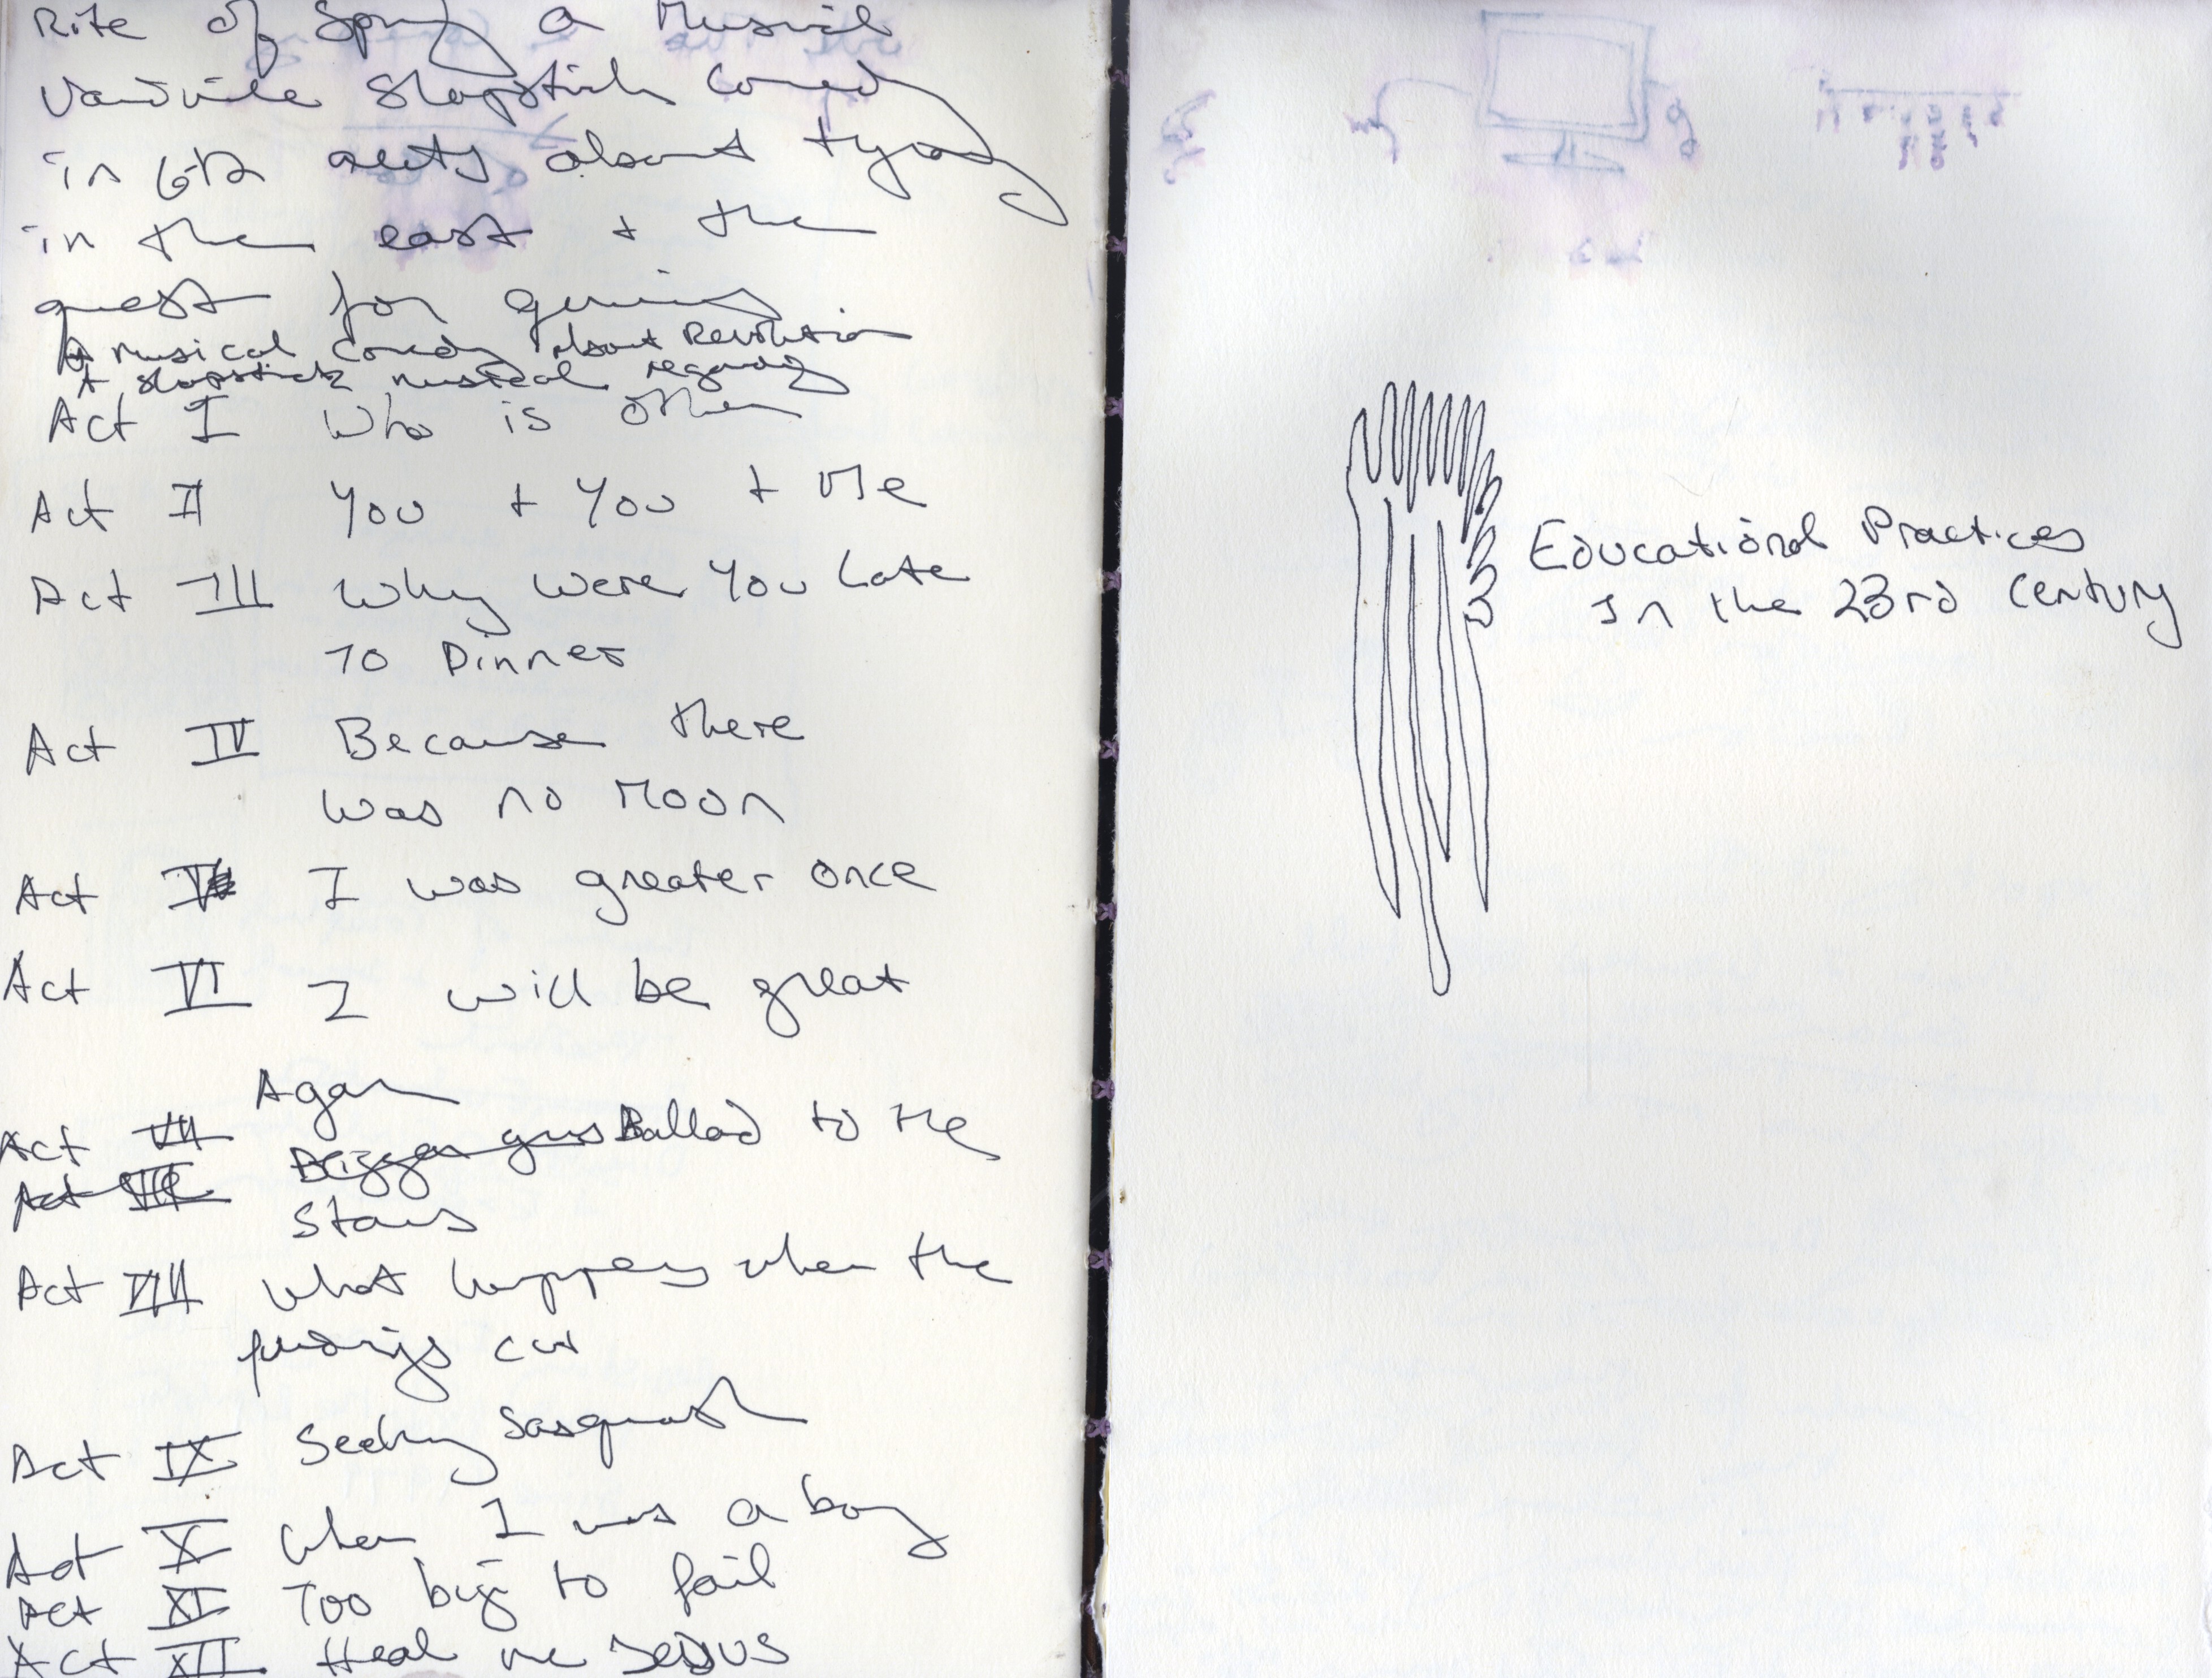 Rite of Spring a Musical
Vaudville Slapstick Comedy
in 12 acts about tyranny
in the east + the
quest for
A musical comedy about Revolution
A slapstick musical regarding
Act I Who is other
Act II You + You + Me
Act III Why were You Late
To Dinner
Act IV Because there
was no Moon
Act V I was greater once
Act VI I will be great
Again
Act VII Ballad to the
Act VIII
Stars
Act VIII What happens when the
cut
Act IX Seeking Sasquatch
Act X When I was a boy
Act XI Too big to fail
Act XII Heal me Jesus
Educational Practices
In the 23rd Century